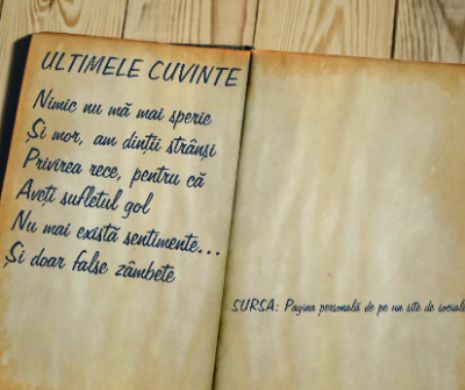 ULTIMELE CUVINTE
Nimic nu mă mai sperie
Și mor, am dinții strânși
Privirea rece, pentru că
Aveți sufletul gol
Nu mai există sentimente...
Și doar false zâmbete
SURSA: Pagina personală de pe un site de sociali